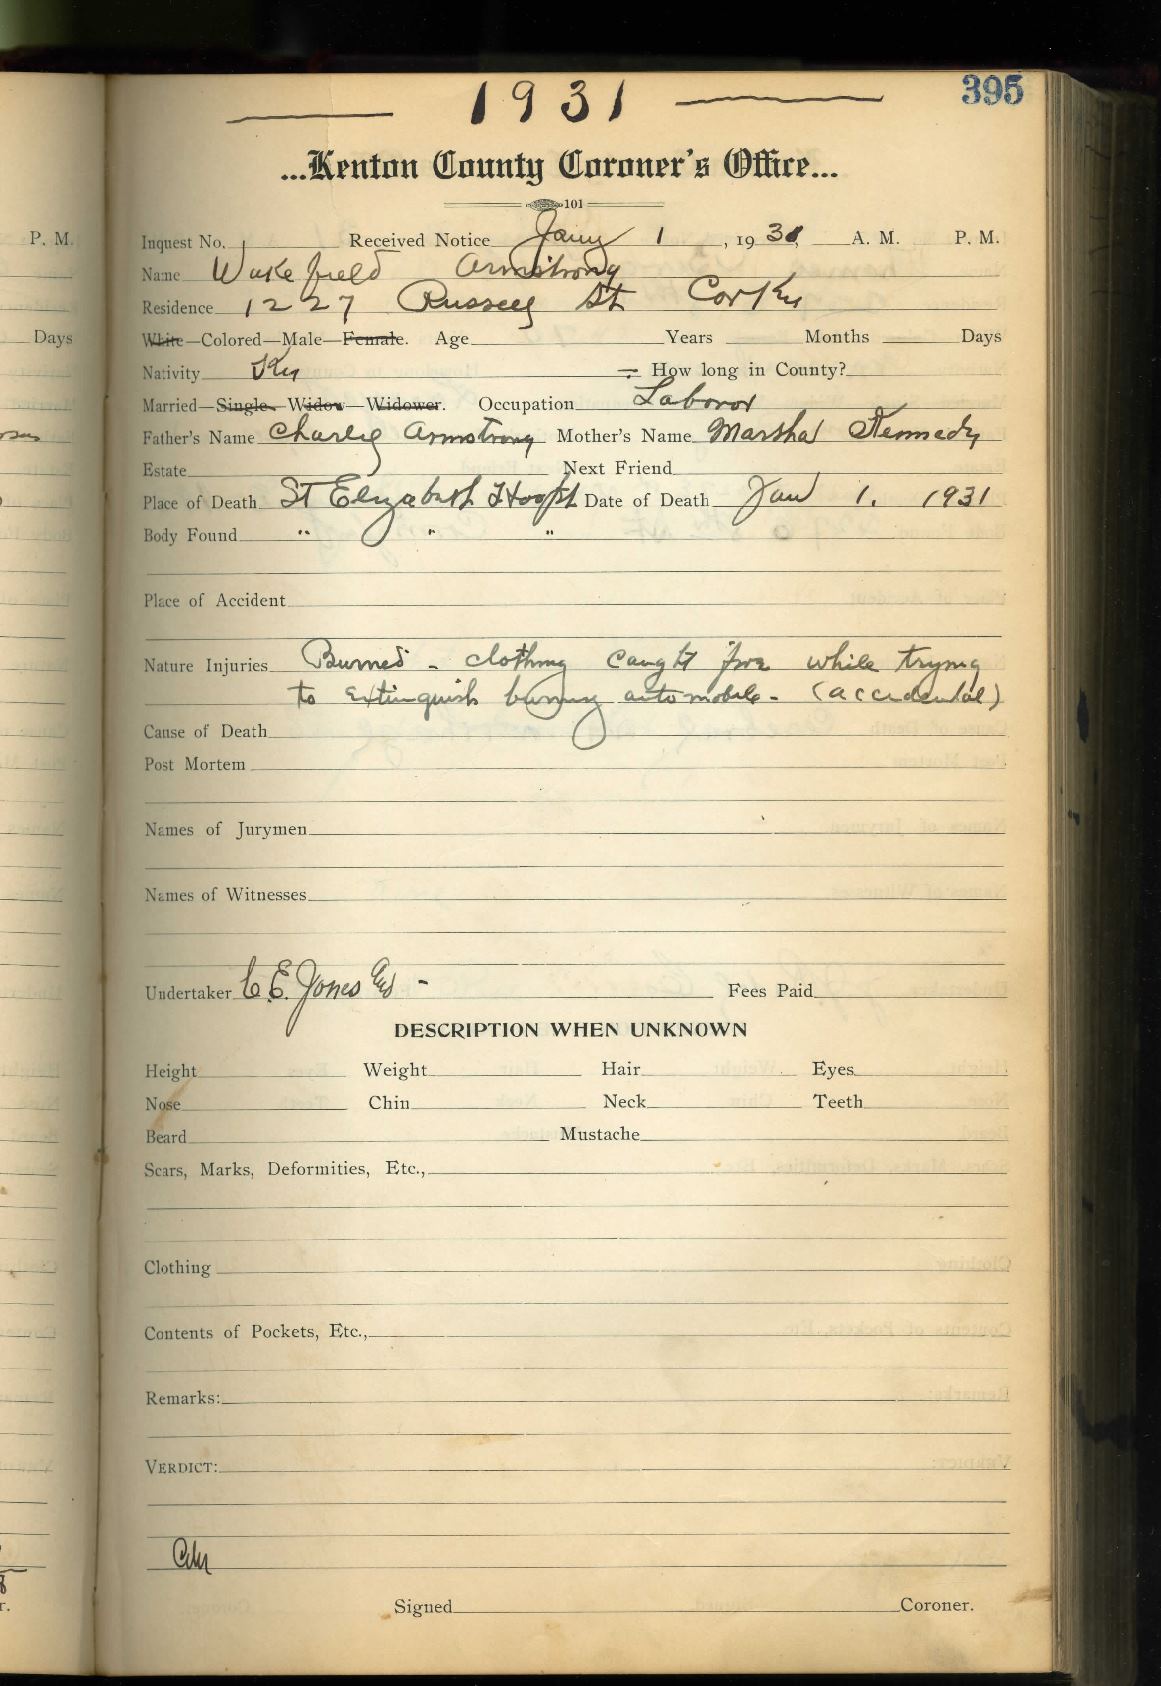 1931
395
...Kenton County Coroner's Office...
101
P. M.
Inquest No. 1 Received Notice Jany 1, 1931 A. M. P. M.
Name Wakefield Armstrong
Residence 1227 Russell St Cov Ky
Days
White—Colored—Male—Female. Age Years Months Days
Nativity Ky How long in County?
Married—Single—Widow—Widower. Occupation Laboror
Father's Name Charlie Armstrong Mother's Name Marsha Kennedy
Estate Next Friend
Place of Death St Elizabeth Hospt Date of Death Jan 1. 1931
Body Found " " "
Place of Accident
Nature Injuries Burned - clothing caught fire while trying
to extinguish burning automobile - (accidental)
Cause of Death
Post Mortem
Names of Jurymen
Names of Witnesses
Undertaker C. E. Jones - Fees Paid
DESCRIPTION WHEN UNKNOWN
Height Weight Hair Eyes
Nose Chin Neck Teeth
Beard Mustache
Scars, Marks, Deformities, Etc.,
Clothing
Contents of Pockets, Etc.,
Remarks:
VERDICT:
Signed Coroner.